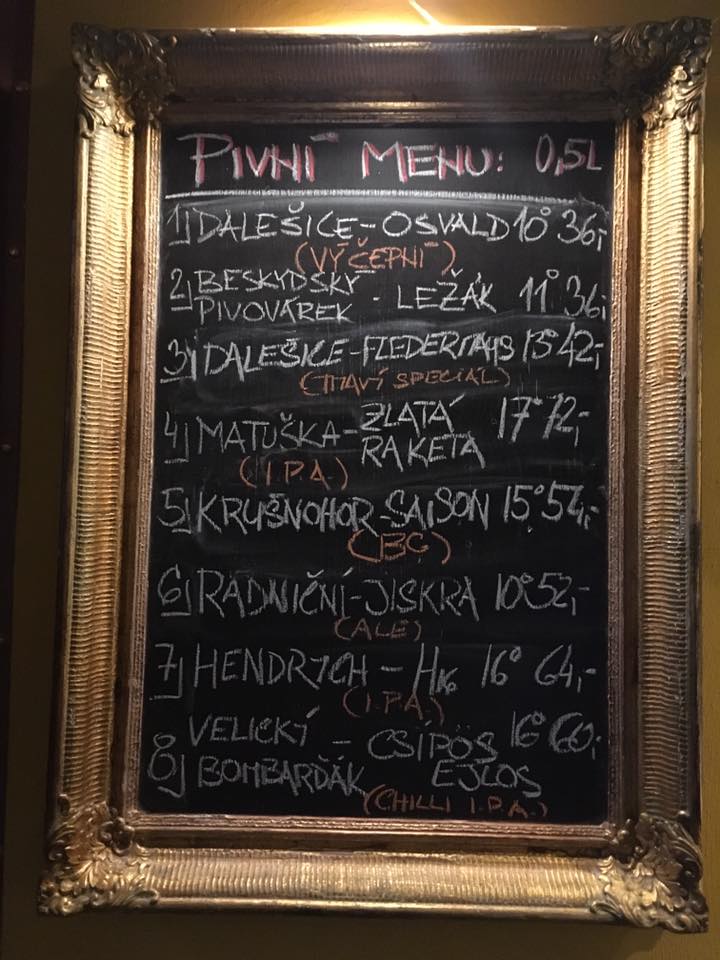 PIVNÍ MENU: 0,5L
1) DALEŠICE-OSVALD 10° 36,-
(VÝČEPNÍ)
2) BESKYDSKÝ PIVOVÁREK - LEŽÁK 11° 36,-
3) DALEŠICE-FLEDERMAUS 13° 42,-
(TMAVÝ SPECIÁL)
4) MATUŠKA-ZLATÁ RAKETA 17° 72,-
(I.P.A.)
5) KRUŠNOHOR-SAISON 15° 54,-
6) RADNIČNÍ-JISKRA 10° 52,-
(ALE)
7) HENDRYCH - H16 16° 64,-
(I.P.A.)
8) VELICKÝ BOMBARĎÁK - CSÍPÖS EJLOS 16° 60,-
(CHILLI I.P.A.)